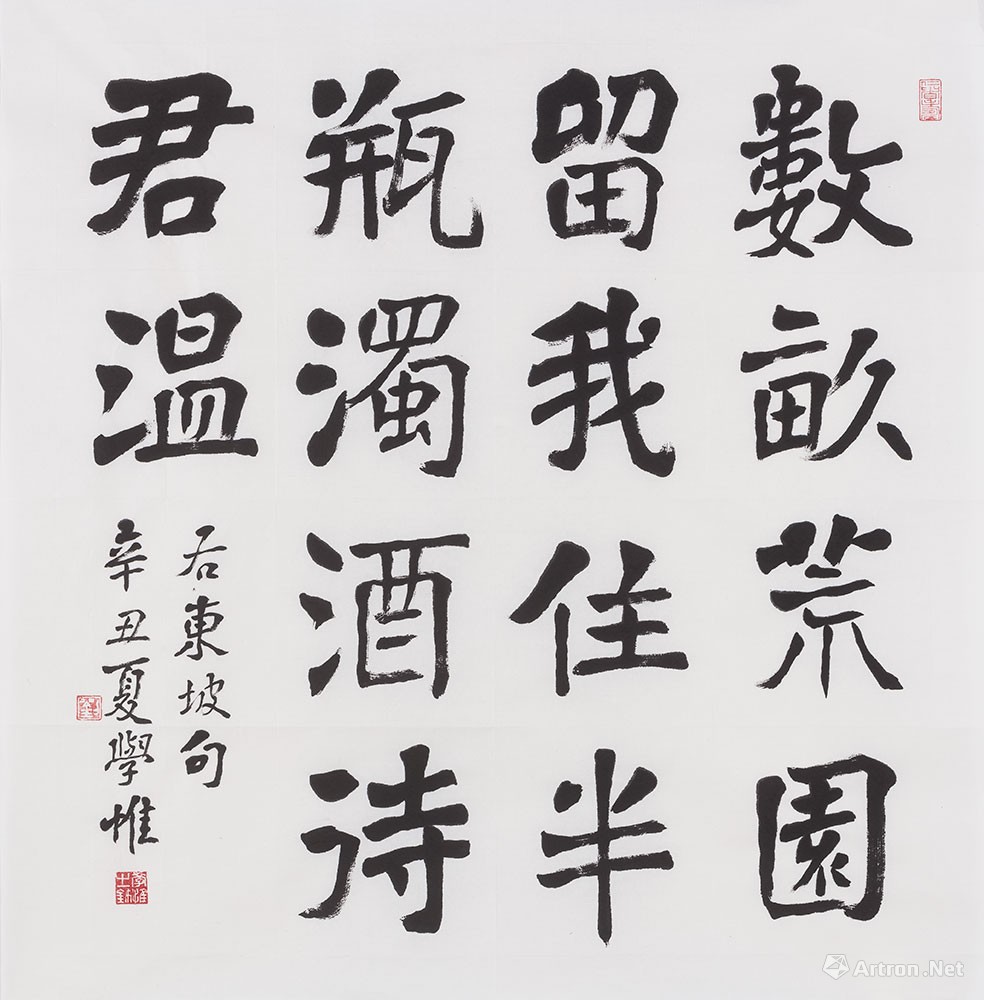 數畝荒園
留我住半
瓶濁酒待
君温
右東坡句
辛丑夏學惟
Artron.Net